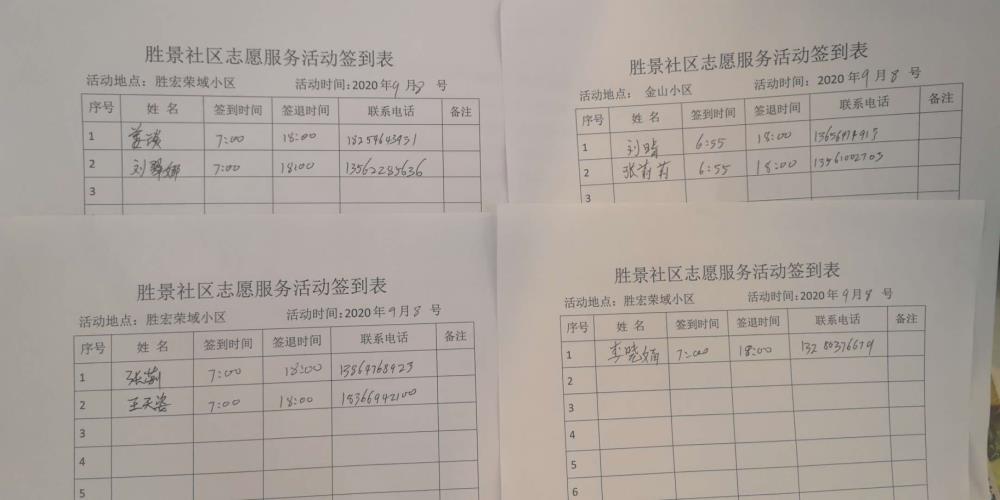 胜景社区志愿服务活动签到表
活动地点：胜宏荣域小区 活动时间：2020年9月8号
序号 姓名 签到时间 签退时间 联系电话 备注
1 7:00 18:00
2 刘 娜 7:00 18:00 13562285636
3
胜景社区志愿服务活动签到表
活动地点： 金山小区 活动时间：2020年9月8号
序号 姓名 签到时间 签退时间 联系电话 备注
1 刘 6:55 18:00
2 张莉莉 6:55 18:00 13561002703
3
胜景社区志愿服务活动签到表
活动地点：胜宏荣域小区 活动时间：2020年9月8号
序号 姓名 签到时间 签退时间 联系电话 备注
1 张 7:00 18:00 13864768923
2 王天姿 7:00 18:00 18366942100
3
4
5
胜景社区志愿服务活动签到表
活动地点：胜宏荣域小区 活动时间：2020年9月8号
序号 姓名 签到时间 签退时间 联系电话 备注
1 李晓娟 7:00 18:00 13280376679
2
3
4
5
6